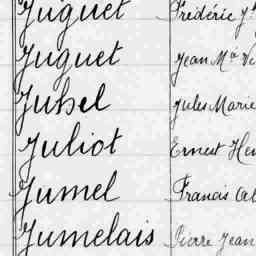 Juguet Frédéric J.
Juguet Jean M.ie
Juhel Jules Marie
Juliot Ernest
Jumel Francis
Jumelais Pierre Jean